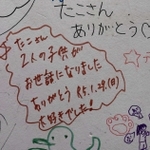 たこさん
ありがとう
たこさん
2人の子供が
お世話になりました
ありがとう
大好きでした!